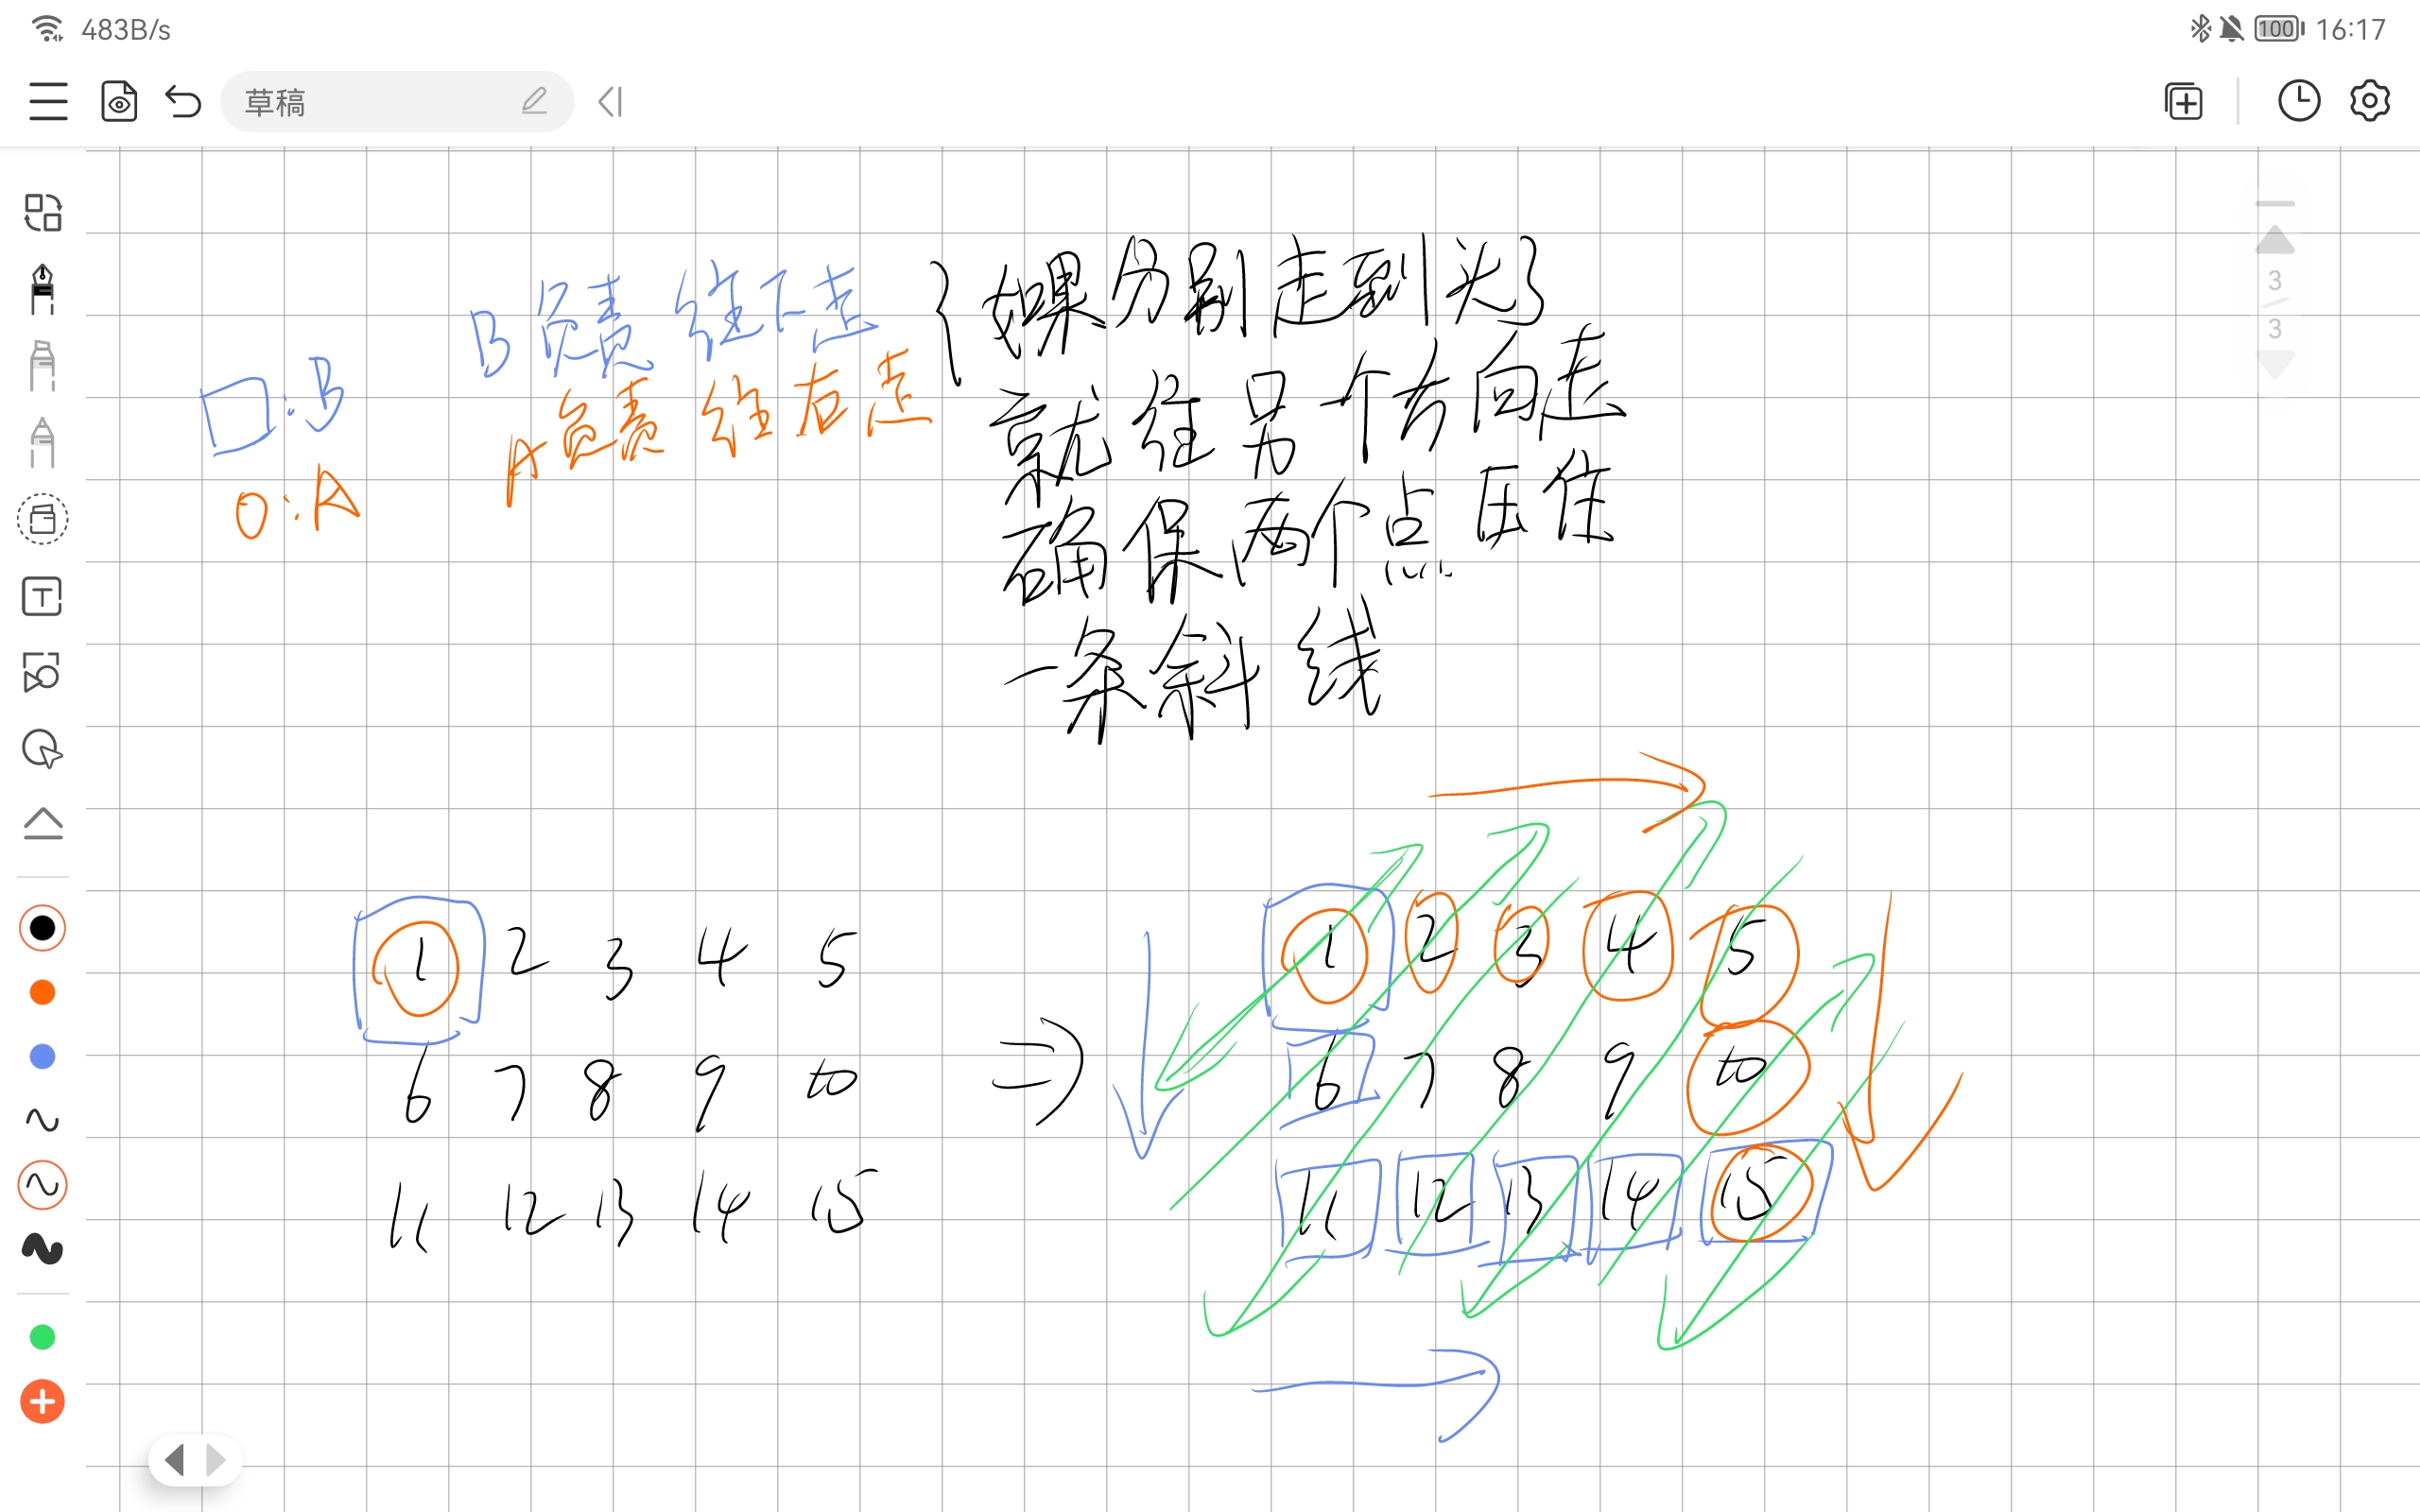 483B/s
100 16:17
草稿
3
3
T
□:B
O:A
B负责 往下走
A负责 往右走
如果分别走到头了
就往另一个方向走
确保两个点压住
一条斜线
1 2 3 4 5
6 7 8 9 10
11 12 13 14 15
1 2 3 4 5
6 7 8 9 10
11 12 13 14 15